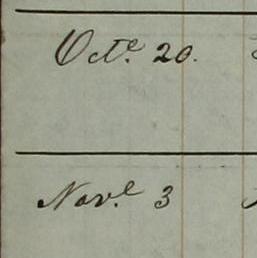 Octe. 20.
Nove. 3